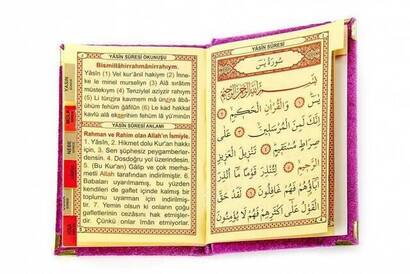 YÂSÎN SÛRESİ OKUNUŞU
Bismillâhirrahmânirrahıym.
Yâsîn (1) Vel kur'ânil hakiym (2) İnne-
ke le minel murseliyn (3) Alâ sırâtın
müstekıym (4) Tenziylel aziyzir rahıym
(5) Li tünzira kavmem mâ ünzira âbâ-
ühüm fehüm ğâfilûn (6) Le kad hakkal
kavlü alâ ekserihim fehüm lâ yü'minûn
YÂSİN SÛRESİ ANLAMI
Rahman ve Rahim olan Allah'ın İsmiyle.
1. Yâsîn, 2. Hikmet dolu Kur'an hakkı
için, 3. Sen şüphesiz peygamberler-
densin. 4. Dosdoğru yol üzerindesin.
5. (Bu Kur'an) Gâlip ve çok merha-
metli Allah tarafından indirilmiştir. 6.
Babaları uyarılmamış, bu yüzden
kendileri de gaflet içinde kalmış bir
toplumu uyarman için indirilmiştir.
7. Yemin olsun ki onların çoğu
gafletlerinin cezasını hak etmişler-
dir. Çünkü onlar îman etmiyorlar.
YÂSİN
YÂSİN SÛRESİ
سُورَةُ يٰسٓ
بِسْمِ اللّٰهِ الرَّحْمٰنِ الرَّحِيمِ
يٰسٓ ۞ وَالْقُرْاٰنِ الْحَكِيمِ ۞
اِنَّكَ لَمِنَ الْمُرْسَلِينَ ۞ عَلٰى
صِرَاطٍ مُسْتَقِيمٍ ۞ تَنْزِيلَ الْعَزِيزِ
الرَّحِيمِ ۞ لِتُنْذِرَ قَوْمًا مَٓا اُنْذِرَ
اٰبَٓاؤُهُمْ فَهُمْ غَافِلُونَ ۞ لَقَدْ حَقَّ
الْقَوْلُ عَلٰٓى اَكْثَرِهِمْ فَهُمْ لَا يُؤْمِنُونَ